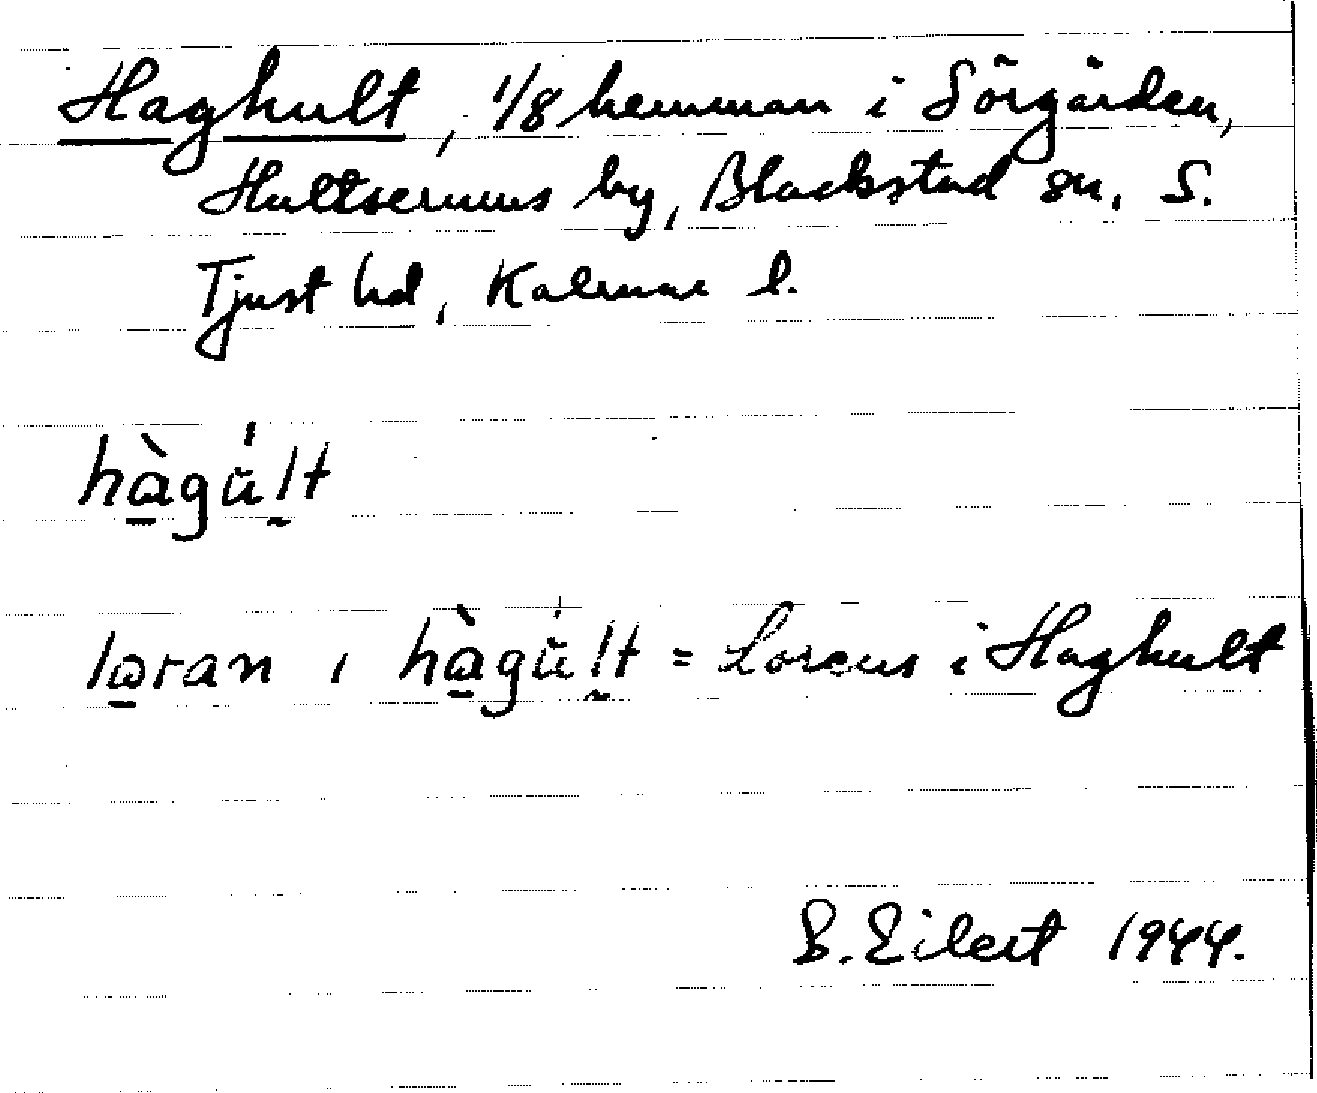 Haghult, 1/8 hemman i Sörgården,
Hultserums by, Blackstad sn, S.
Tjust hd, Kalmar l.
hàgu̇̆l̰t
lɷran ı hàgu̇̆l̰t = Lorens i Haghult
B. Eilert 1944.